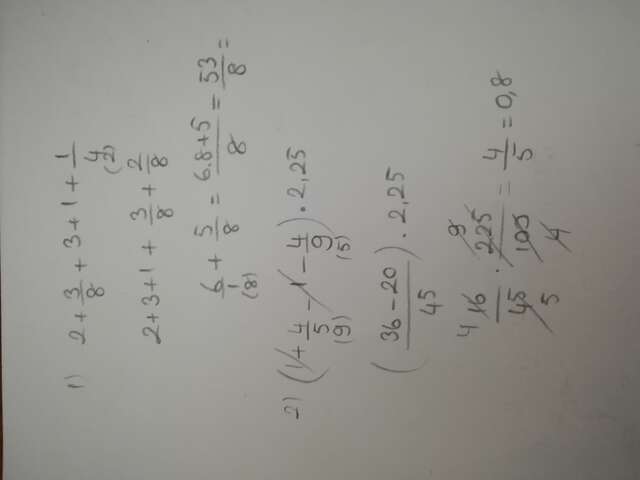 1) 2 + 3/8 + 3 + 1 + 1/4
(2)
2 + 3 + 1 + 3/8 + 2/8
6/1 + 5/8 = 6.8+5/8 = 53/8 =
(8)
2) (1 + 4/5 - 1 - 4/9) . 2,25
(9) (5)
(36 - 20/45) . 2,25
4 9
16/45 . 225/100 = 4/5 = 0,8
5 4